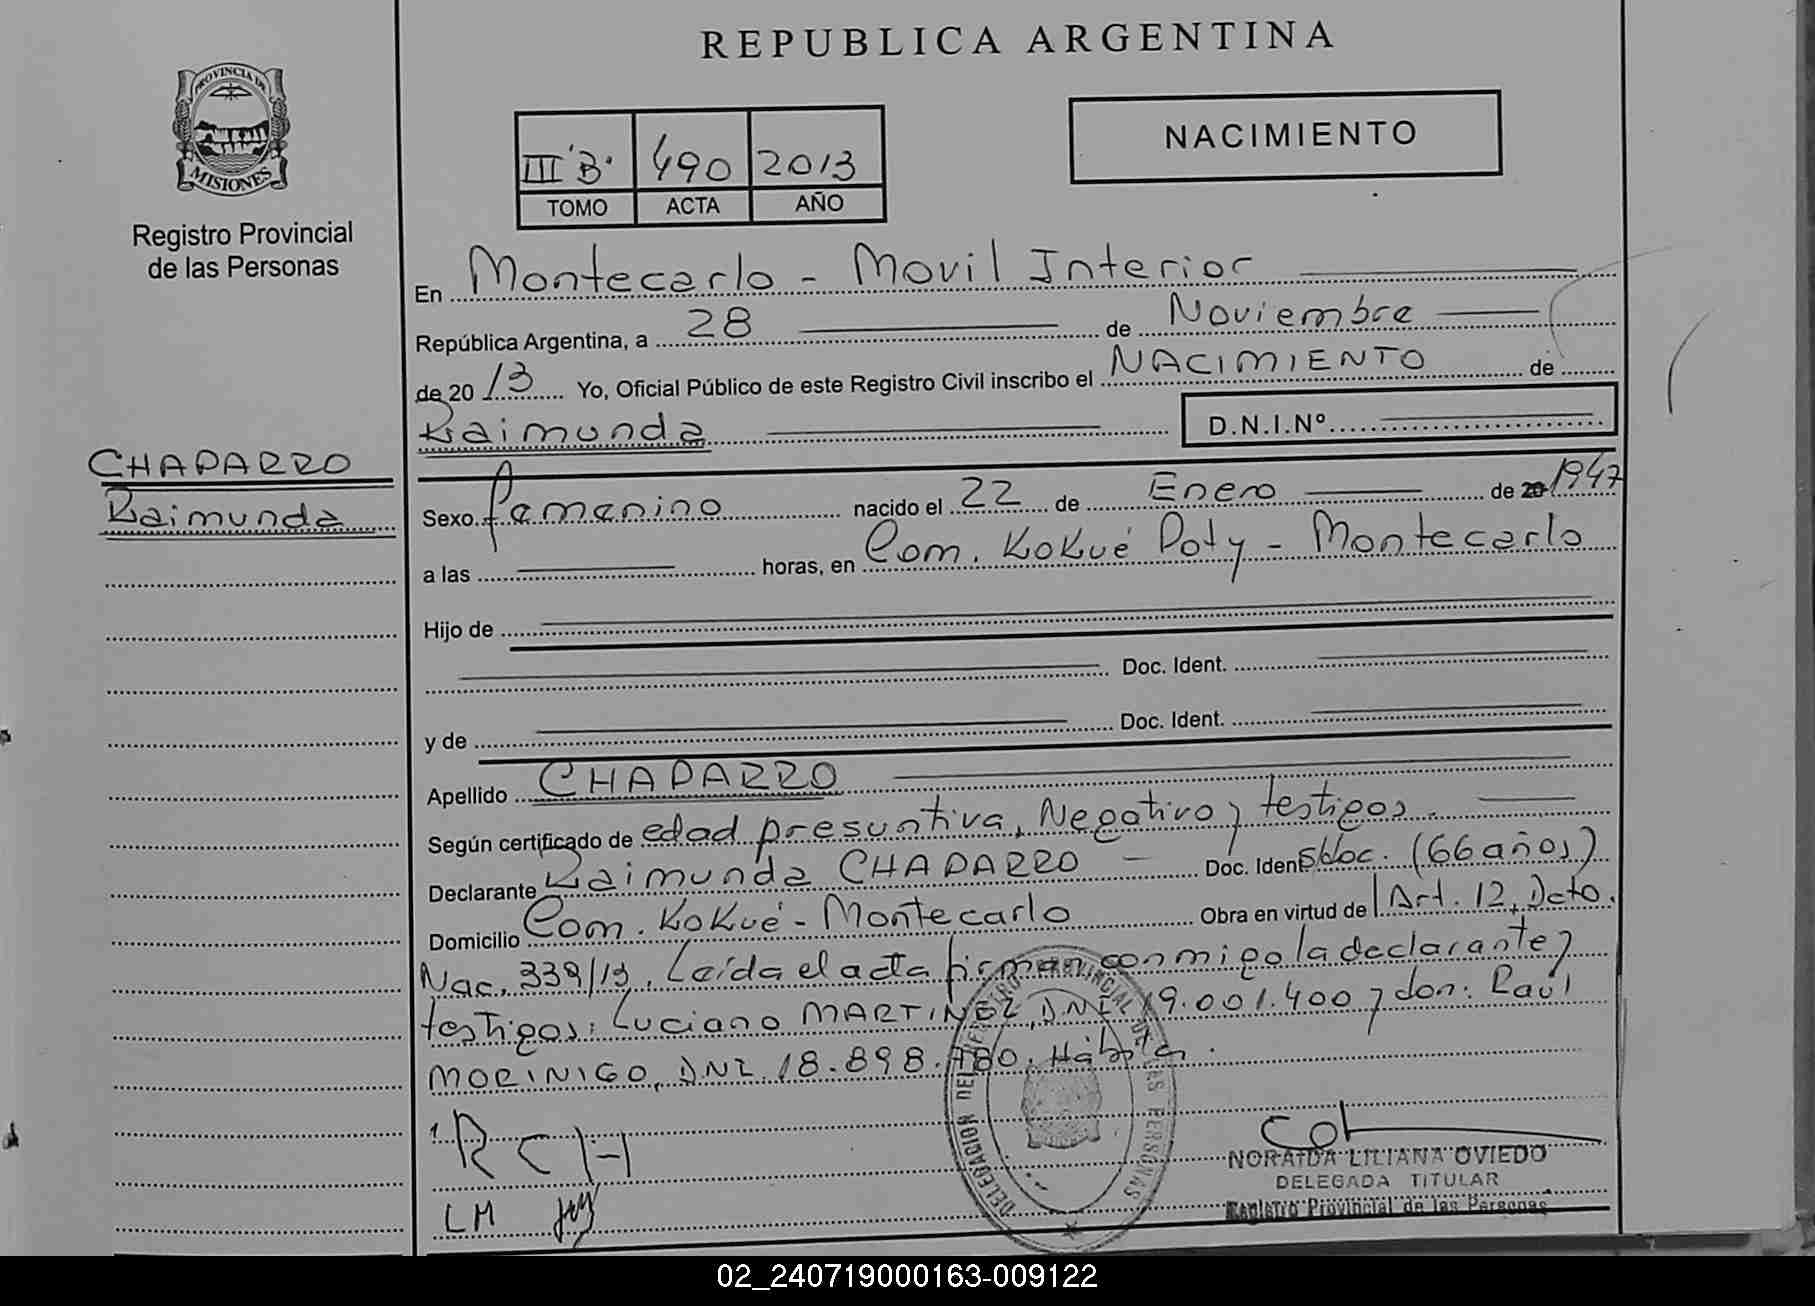 REPUBLICA ARGENTINA
PROVINCIA DE
MISIONES
Registro Provincial
de las Personas
III "B" 490 2013
TOMO ACTA AÑO
NACIMIENTO
En Montecarlo - Movil Interior
República Argentina, a 28 de Noviembre
de 2013 Yo, Oficial Público de este Registro Civil inscribo el NACIMIENTO de
Raimunda D.N.I.Nº
CHAPARRO
Raimunda
Sexo femenino nacido el 22 de Enero de 20 1947
a las horas, en Com. Kokué Poty - Montecarlo
Hijo de
Doc. Ident.
y de Doc. Ident.
Apellido CHAPARRO
Según certificado de edad presuntiva, Negativo y testigos.
Declarante Raimunda CHAPARRO Doc. Ident. s/doc. (66 años)
Domicilio Com. Kokué - Montecarlo Obra en virtud de Art. 12, Dcto.
Nac. 339/13. Leída el acta firman conmigo la declarante y
testigos: Luciano MARTINEZ, DNI 19.001.400 y don: Raúl
MORINIGO, DNI 18.898.780.
RCH
LM
DELEGACION DEL REGISTRO PROVINCIAL DE LAS PERSONAS
NORAIDA LILIANA OVIEDO
DELEGADA TITULAR
Registro Provincial de las Personas
02_240719000163-009122